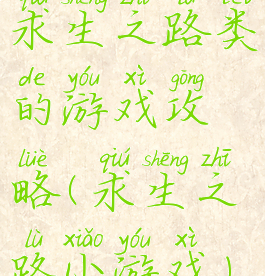 qiú shēng zhī lù lèi
求生之路类
de yóu xì gōng
的游戏攻
lüè qiú shēng zhī
略(求生之
lù xiǎo yóu xì
路小游戏)